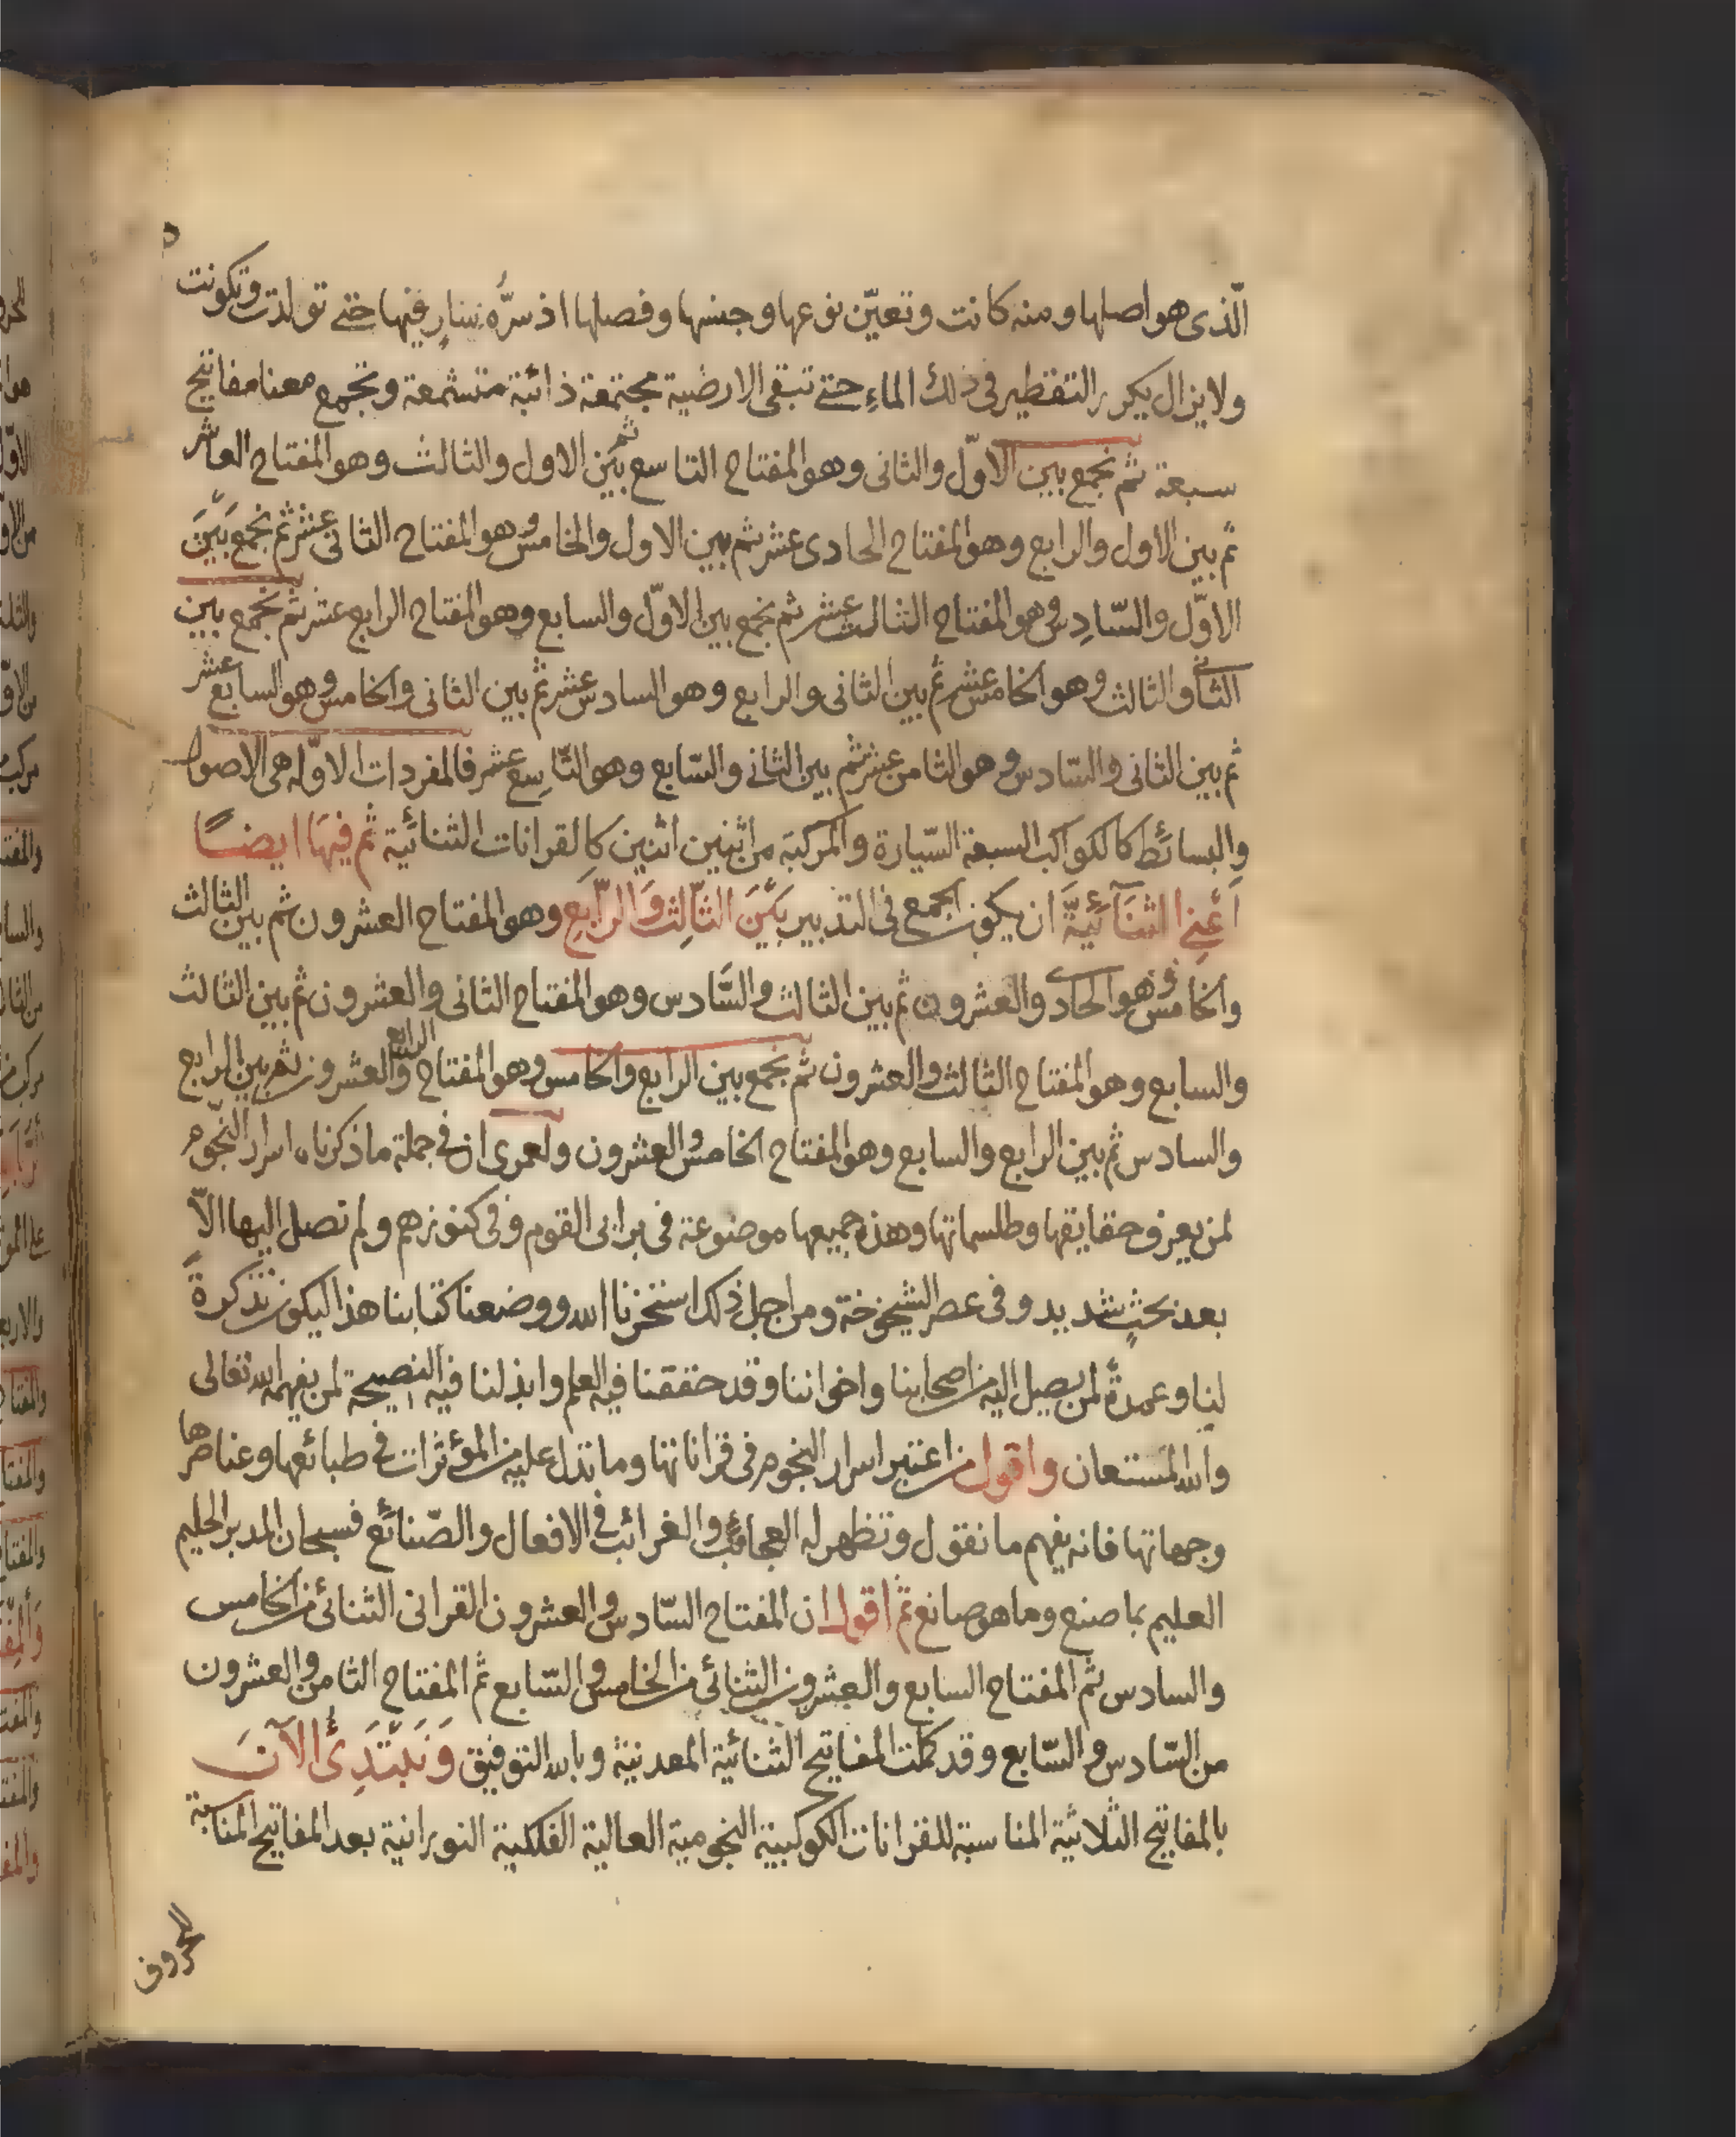 الّذى هو اصلها ومنه كانت وتعيّن نوعها وجنسها وفصلها اذ سرّه سار فيها حتى تولدت وتكونت
ولا يزال يكرر التقطير فى ذلك الماء حتى تبقى الارضية مجتمعة ذائبة متشمعة وتجمع معنا مفاتيح
سبعة ثم نجمع بين الاوّل والثانى وهو المفتاح التاسع ثم بين الاول والثالث وهو المفتاح العاشر
ثم بين الاول والرابع وهو المفتاح الحادى عشر ثم بين الاول والخامس وهو المفتاح الثانى عشر ثم نجمع بَيْنَ
الاوّل والسّادس وهو المفتاح الثالث عشر ثم نجمع بين الاوّل والسابع وهو المفتاح الرابع عشر ثم نجمع بين
الثانى والثالث وهو الخامس عشر ثم بين الثانى والرابع وهو السادس عشر ثم بين الثانى والخامس وهو السابع عشر
ثم بين الثانى والسّادس وهو الثامن عشر ثم بين الثانى والسّابع وهو التّاسع عشر فالمفردات الاوّله هى الاصول
والبسائط كالكواكب السبعة السّيارة والمركبة من اثنين اثنين كالقرانات الثنائية ثم فيها ايضًا
اَعْنِى الثنَآئيّة ان يكون الجمع فى التدبير بَيْنَ الثّالِث وَالرّابع وهو المفتاح العشرون ثم بين الثالث
والخامس وهو الحادى والعشرون ثم بين الثالث والسّادس وهو المفتاح الثانى والعشرون ثم بين الثالث
والسابع وهو المفتاح الثالث والعشرون ثم نجمع بين الرابع والخامس وهو المفتاح الرابع والعشرون ثم بين الرابع
والسادس ثم بين الرابع والسابع وهو المفتاح الخامس والعشرون ولعمرى ان فى جملة ما ذكرناه اسرار النجوم
لمن يعرف حقايقها وطلسماتها وهذه جميعها موضوعة فى برابى القوم وفى كنوزهم ولم نصل اليها الّا
بعد بحثٍ شديد وفى عصر الشيخوخة ومن اجل ذلك استخرنا الله ووضعنا كتابنا هذا ليكون تذكرةً
لنا وعمدةً لمن يصل اليه من اصحابنا واخواننا وقد حققنا فيه العلم وابذلنا فيه النصيحة لمن يفهمه الله تعالى
والله المستعان واقول من اعتبر اسرار النجوم فى قراناتها وما تدل عليه من المؤثرات فى طبائعها وعناصرها
وجهاتها فانه يفهم ما نقول وتظهر له العجائب والغرائب فى الافعال والصّنائع فسبحان المدبر الحليم
العليم بما صنع وما هو صانع ثم اقول ان المفتاح السّادس والعشرون القرانى الثنائى من الخامس
والسادس ثم المفتاح السابع والعشرون الثنائى من الخامس والسّابع ثم المفتاح الثامن والعشرون
من السّادس والسّابع وقد كملت المفاتيح الثنائية المعدنية وبالله التوفيق وَنَبْتَدِئُ الآنَ
بالمفاتيح الثلاثية المناسبة للقرانات الكوكبية النجومية العالية الفلكية النورانية بعد المفاتيح المناسبة
للحروف